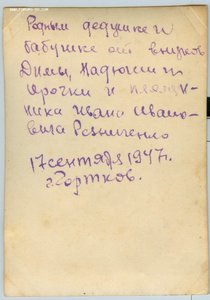 Родным дедушке и
бабушке от внуков
Димы, Надюши и
Ирочки и племян-
ника Ивана Ивано-
вича Резниченко
17 сентября 1947 г.
г. Чортков.